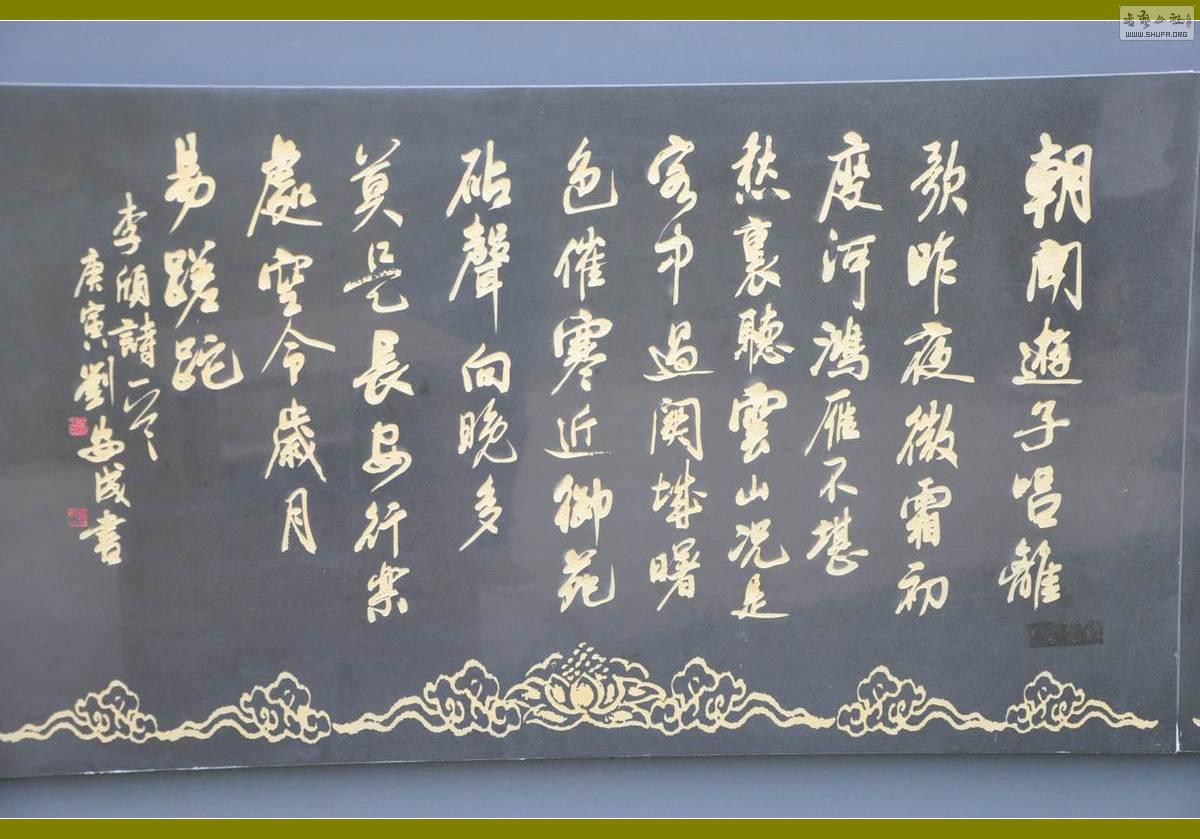 朝聞遊子唱離
歌昨夜微霜初
度河鴻雁不堪
愁裏聽雲山況是
客中過關城曙
色催寒近御苑
砧聲向晚多
莫是長安行樂
處空令歲月
易蹉跎
李頎詩一首
庚寅劉安成書
WWW.SHUFA.ORG